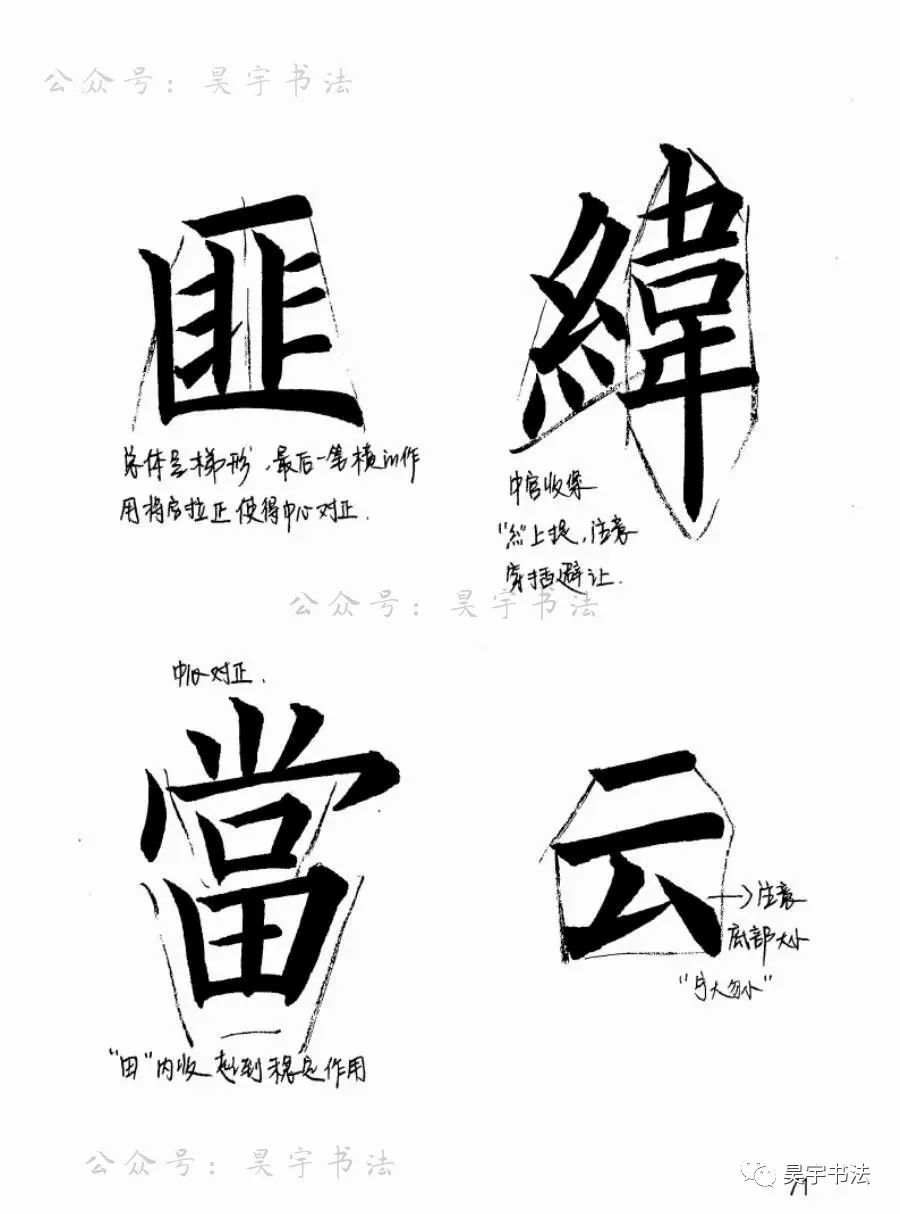 公众号：昊宇书法
匪
緯
总体呈梯形，最后一笔横的作
用将字拉正使得中心对正．
中宫收紧
"糹"上提，注意
穿插避让．
公众号：昊宇书法
中心对正．
當
云
→注意
底部大小
"宁大勿小"
"田"内收 起到稳定作用
公众号：昊宇书法
昊宇书法
71